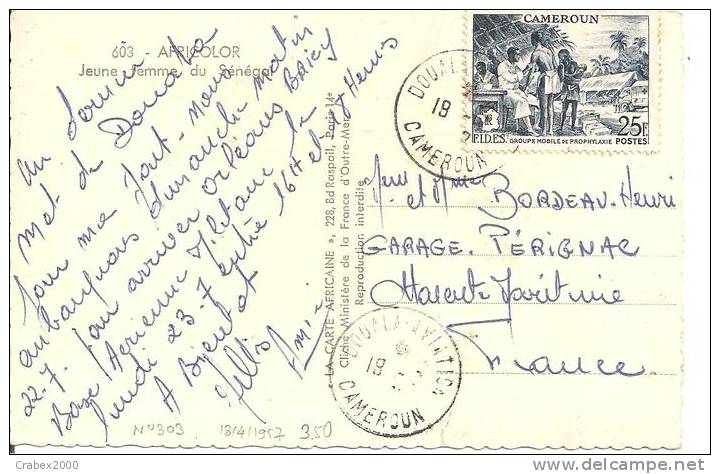 603 - AFRICOLOR
Jeune femme du Sénégal
Un dernier
de Douala
Pour ma Tout-Nous
embarquons dimanche matin
22-7. Pour arriver Orléans BRICY
Base Aérienne Militaire le
lundi 23-7 entre 16H et Heures
A Bientôt
« LA CARTE AFRICAINE », 228, Bd Raspail, Paris 14e
Cliché Ministère de la France d'Outre-Mer
Reproduction interdite
CAMEROUN
F.I.D.E.S. GROUPE MOBILE DE PROPHYLAXIE POSTES
25F
DOUALA
18
CAMEROUN
et Mme BORDEAU. Henri
GARAGE. PÉRIGNAC
Charente Maritime
France
DOUALA-AVIATION
18
CAMEROUN
N°303 18/4/1957 3.50
Crabex2000
www.delcampe.net